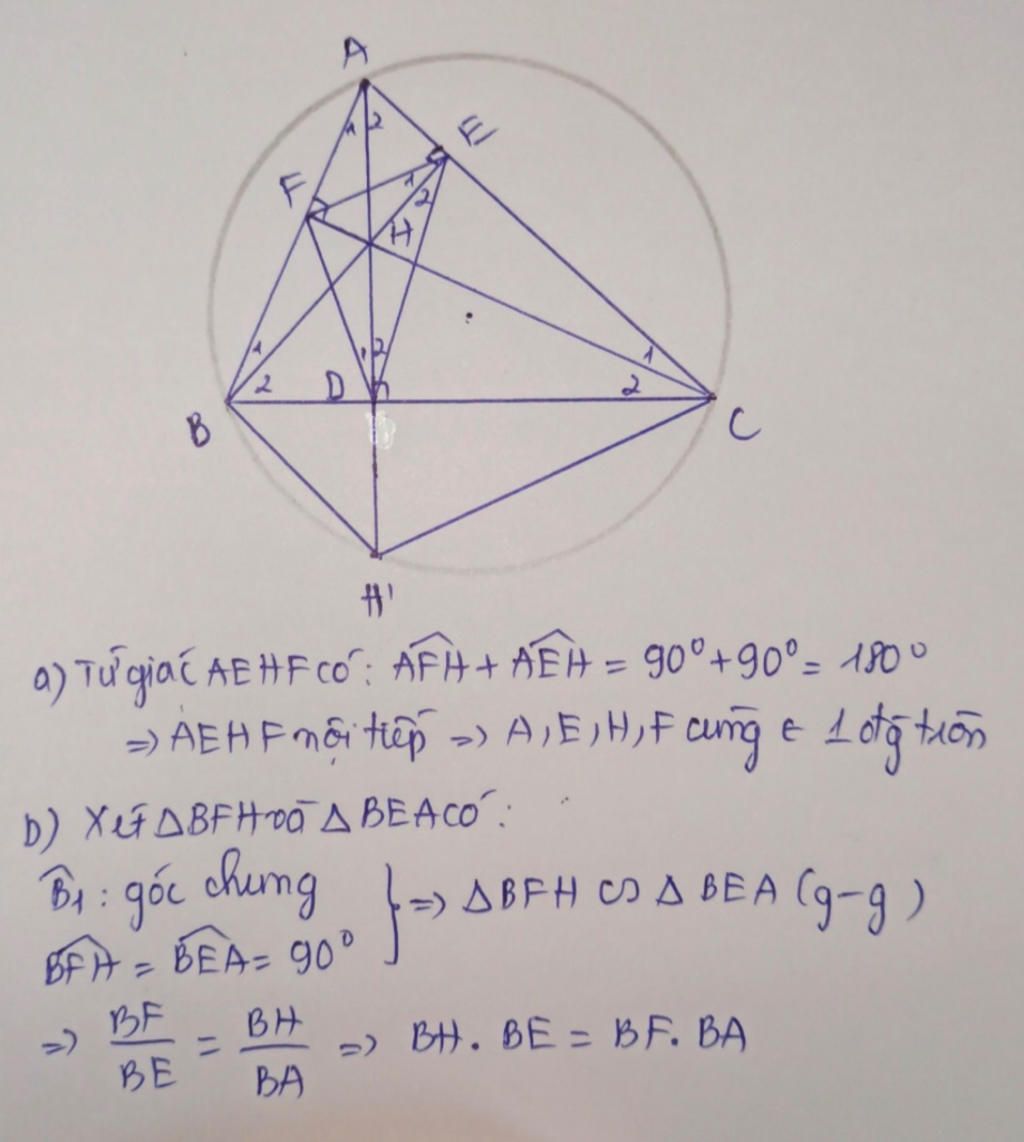 A
1 2
E
F
1
2
H
1
1 2
1
2
D
2
B
C
H'
a) Tứ giác AEHF có: \widehat{AFH} + \widehat{AEH} = 90° + 90° = 180°
=> AEHF nội tiếp => A, E, H, F cùng ∈ 1 đg tròn
b) Xét ΔBFH và ΔBEA có:
\widehat{B}₁ : góc chung } => ΔBFH ∽ ΔBEA (g-g)
\widehat{BFH} = \widehat{BEA} = 90°
=> BF/BE = BH/BA => BH. BE = BF. BA